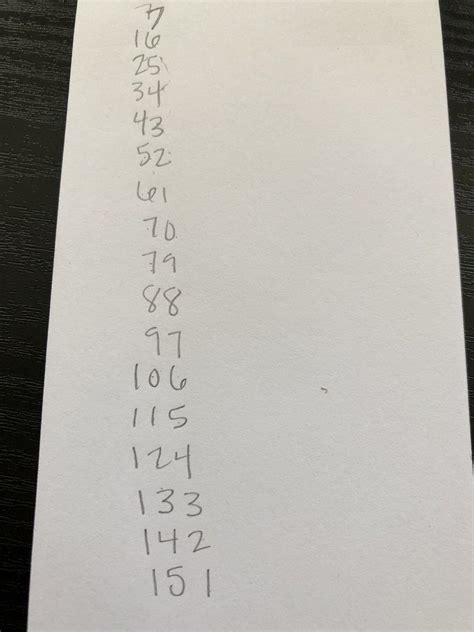 7
16
25
34
43
52
61
70
79
88
97
106
115
124
133
142
151